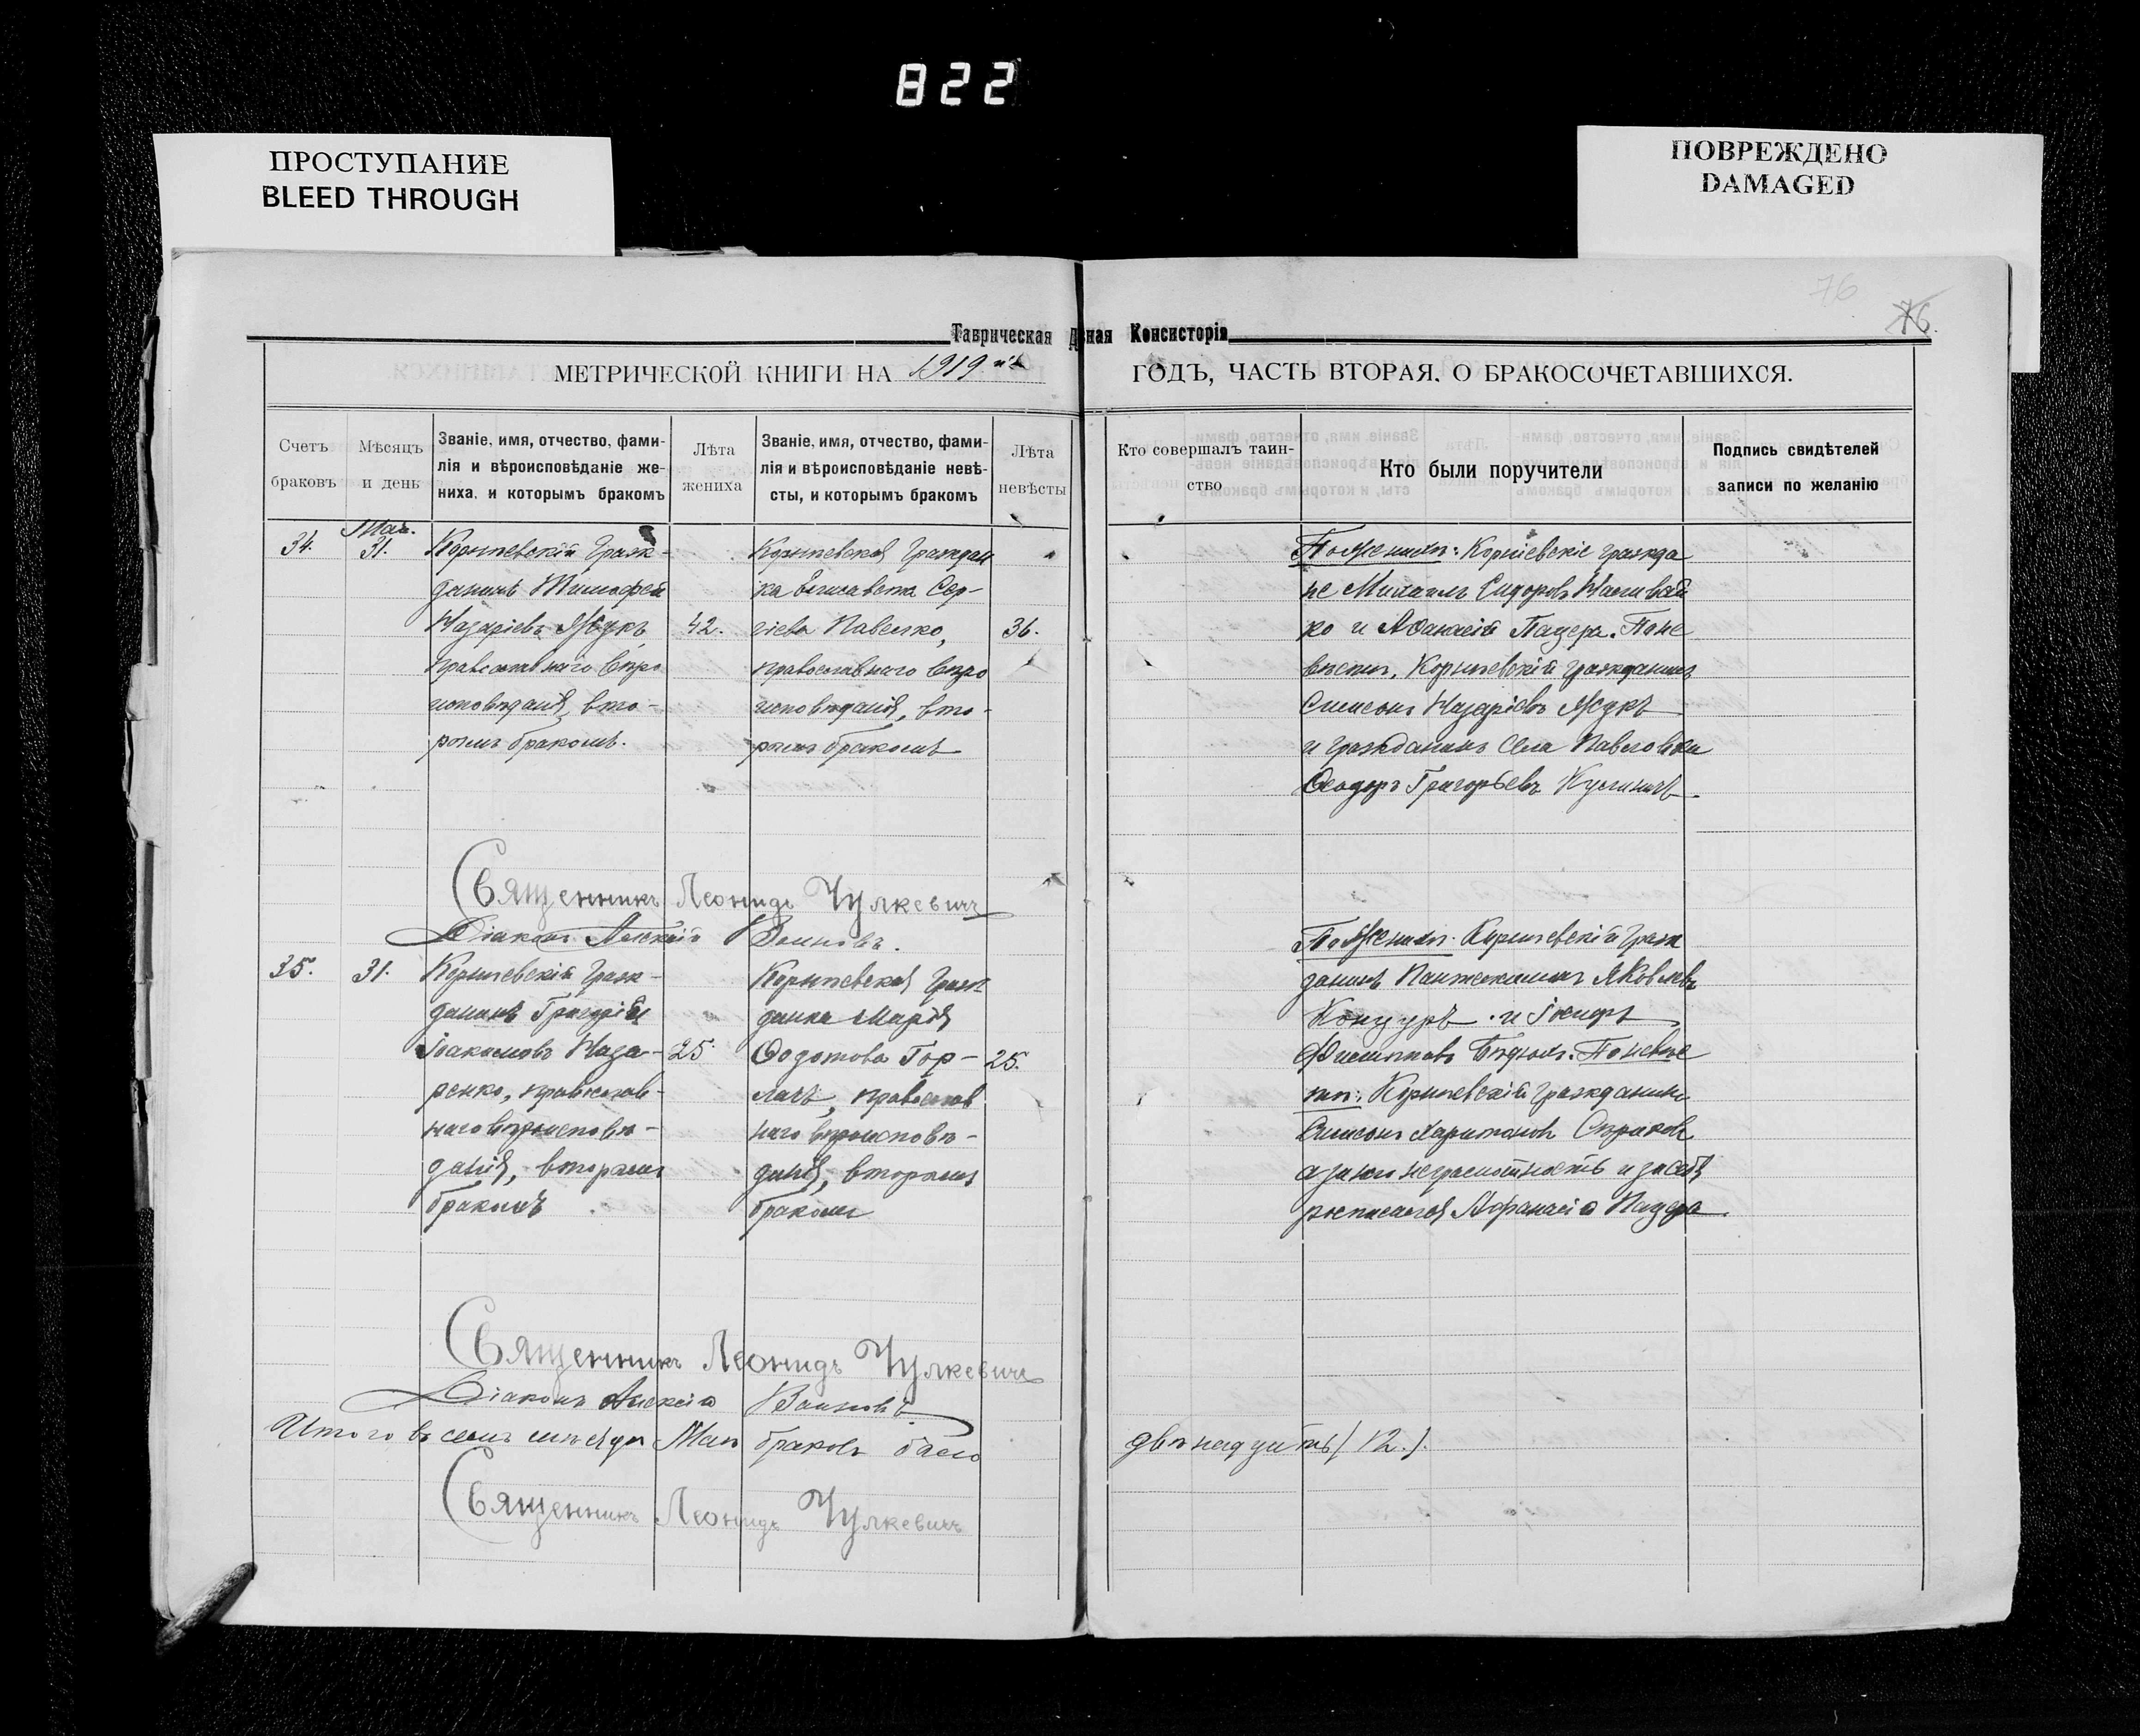 822
ПРОСТУПАНИЕ
BLEED THROUGH
ПОВРЕЖДЕНО
DAMAGED
76
76.
Таврическая Д ная Консисторія
МЕТРИЧЕСКОЙ КНИГИ НА 1919 ый ГОДЪ, ЧАСТЬ ВТОРАЯ. О БРАКОСОЧЕТАВШИХСЯ.
Счетъ
браковъ
Мѣсяцъ
и день
Званіе, имя, отчество, фами-
лія и вѣроисповѣданіе же-
ниха, и которымъ бракомъ
Лѣта
жениха
Званіе, имя, отчество, фами-
лія и вѣроисповѣданіе невѣ-
сты, и которымъ бракомъ
Лѣта
невѣсты
Кто совершалъ таин-
ство
Кто были поручители
Подпись свидѣтелей
записи по желанію
34.
Мая.
31.
граж-
данинъ Тимофей
Назаріевъ Жукъ,
православнаго вѣро
исповѣданія, вто-
рымъ бракомъ.
42.
граждан
ка Елисавета Сер-
гіева Павелко,
православнаго вѣро
исповѣданія, вто-
рымъ бракомъ
36.
По женихѣ: гражда
не Михаилъ Сидоровъ
ко и Афанасій Пацера. По не
вѣстѣ, гражданинъ
Симеонъ Назаріевъ Жукъ
и гражданинъ села Павловки
Ѳеодоръ Григорьевъ
Священникъ Леонидъ Чулкевичъ
Діаконъ Алексій
35.
31.
граж-
данинъ Григорій
Іоакимовъ Наза-
ренко, православ-
наго вѣроисповѣ-
данія, вторымъ
бракомъ
25.
граж
данка Марія
Ѳедотова Гор-
лачъ, православ
наго вѣроисповѣ-
данія, вторымъ
бракомъ
25.
По женихѣ: граж
данинъ Пантелеимонъ Яковлевъ
и Іосифъ
Филипповъ По невѣс
тѣ: гражданинъ
Симеонъ Харитоновъ
а за его неграмотность и за себя
росписался Афанасій Пацера.
Священникъ Леонидъ Чулкевичъ
Діаконъ Алексій
Итого въ семъ мѣсяцѣ Маѣ браковъ было двѣнадцать (12.).
Священникъ Леонидъ Чулкевичъ